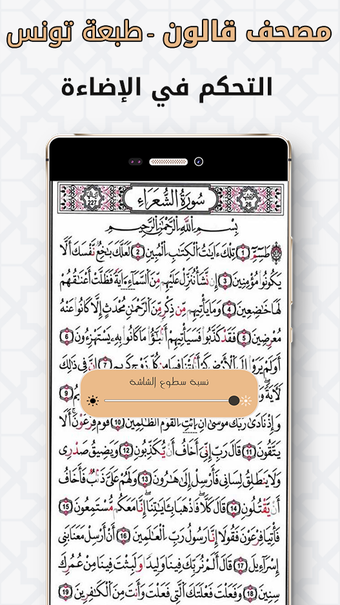 مصحف قالون - طبعة تونس
التحكم في الإضاءة
سُورَةُ الشُّعَرَاءِ
بِسْمِ اللَّهِ الرَّحْمَٰنِ الرَّحِيمِ
طسٓمٓۖ 1 تِلْكَ ءَايَٰتُ الْكِتَٰبِ الْمُبِينِ 2 لَعَلَّكَ بَٰخِعٌ نَّفْسَكَ أَلَّا
يَكُونُوا مُؤْمِنِينَ 3 إِن نَّشَأْ نُنَزِّلْ عَلَيْهِم مِّنَ السَّمَآءِ اٰيَةً فَظَلَّتْ أَعْنَٰقُهُمْ
لَهَا خَٰضِعِينَ 4 وَمَا يَأْتِيهِم مِّن ذِكْرٍ مِّنَ الرَّحْمَٰنِ مُحْدَثٍ إِلَّا كَانُوا عَنْهُ
مُعْرِضِينَ 5 فَقَدْ كَذَّبُوا فَسَيَأْتِيهِمْ أَنۢبَٰٓؤُا مَا كَانُوا بِهِ يَسْتَهْزِءُونَ 6
أَوَلَمْ يَرَوْا إِلَى الْأَرْضِ كَمْ أَنۢبَتْنَا فِيهَا مِن كُلِّ زَوْجٍ كَرِيمٍ 7 إِنَّ فِي ذَٰلِكَ
لَأٓيَةً 9
نسبة سطوع الشاشة
وَإِذْ نَادَىٰ رَبُّكَ مُوسَىٰ أَنِ ايتِ الْقَوْمَ الظَّٰلِمِينَ 10 قَوْمَ فِرْعَوْنَ أَلَا
يَتَّقُونَ 11 قَالَ رَبِّ إِنِّيَ أَخَافُ أَن يُّكَذِّبُونِ 12 وَيَضِيقُ صَدْرِي
وَلَا يَنطَلِقُ لِسَانِي فَأَرْسِلْ إِلَىٰ هَٰرُونَ 13 وَلَهُمْ عَلَيَّ ذَنۢبٌ فَأَخَافُ
أَن يَّقْتُلُونِ 14 قَالَ كَلَّا فَاذْهَبَا بِـَٔايَٰتِنَآ إِنَّا مَعَكُم مُّسْتَمِعُونَ 15
فَأْتِيَا فِرْعَوْنَ فَقُولَآ إِنَّا رَسُولُ رَبِّ الْعَٰلَمِينَ 16 أَنْ أَرْسِلْ مَعَنَا بَنِي
إِسْرَآءِيلَ 17 قَالَ أَلَمْ نُرَبِّكَ فِينَا وَلِيدًا وَلَبِثْتَ فِينَا مِنْ عُمُرِكَ
سِنِينَ 18 وَفَعَلْتَ فَعْلَتَكَ الَّتِي فَعَلْتَ وَأَنتَ مِنَ الْكَٰفِرِينَ 19